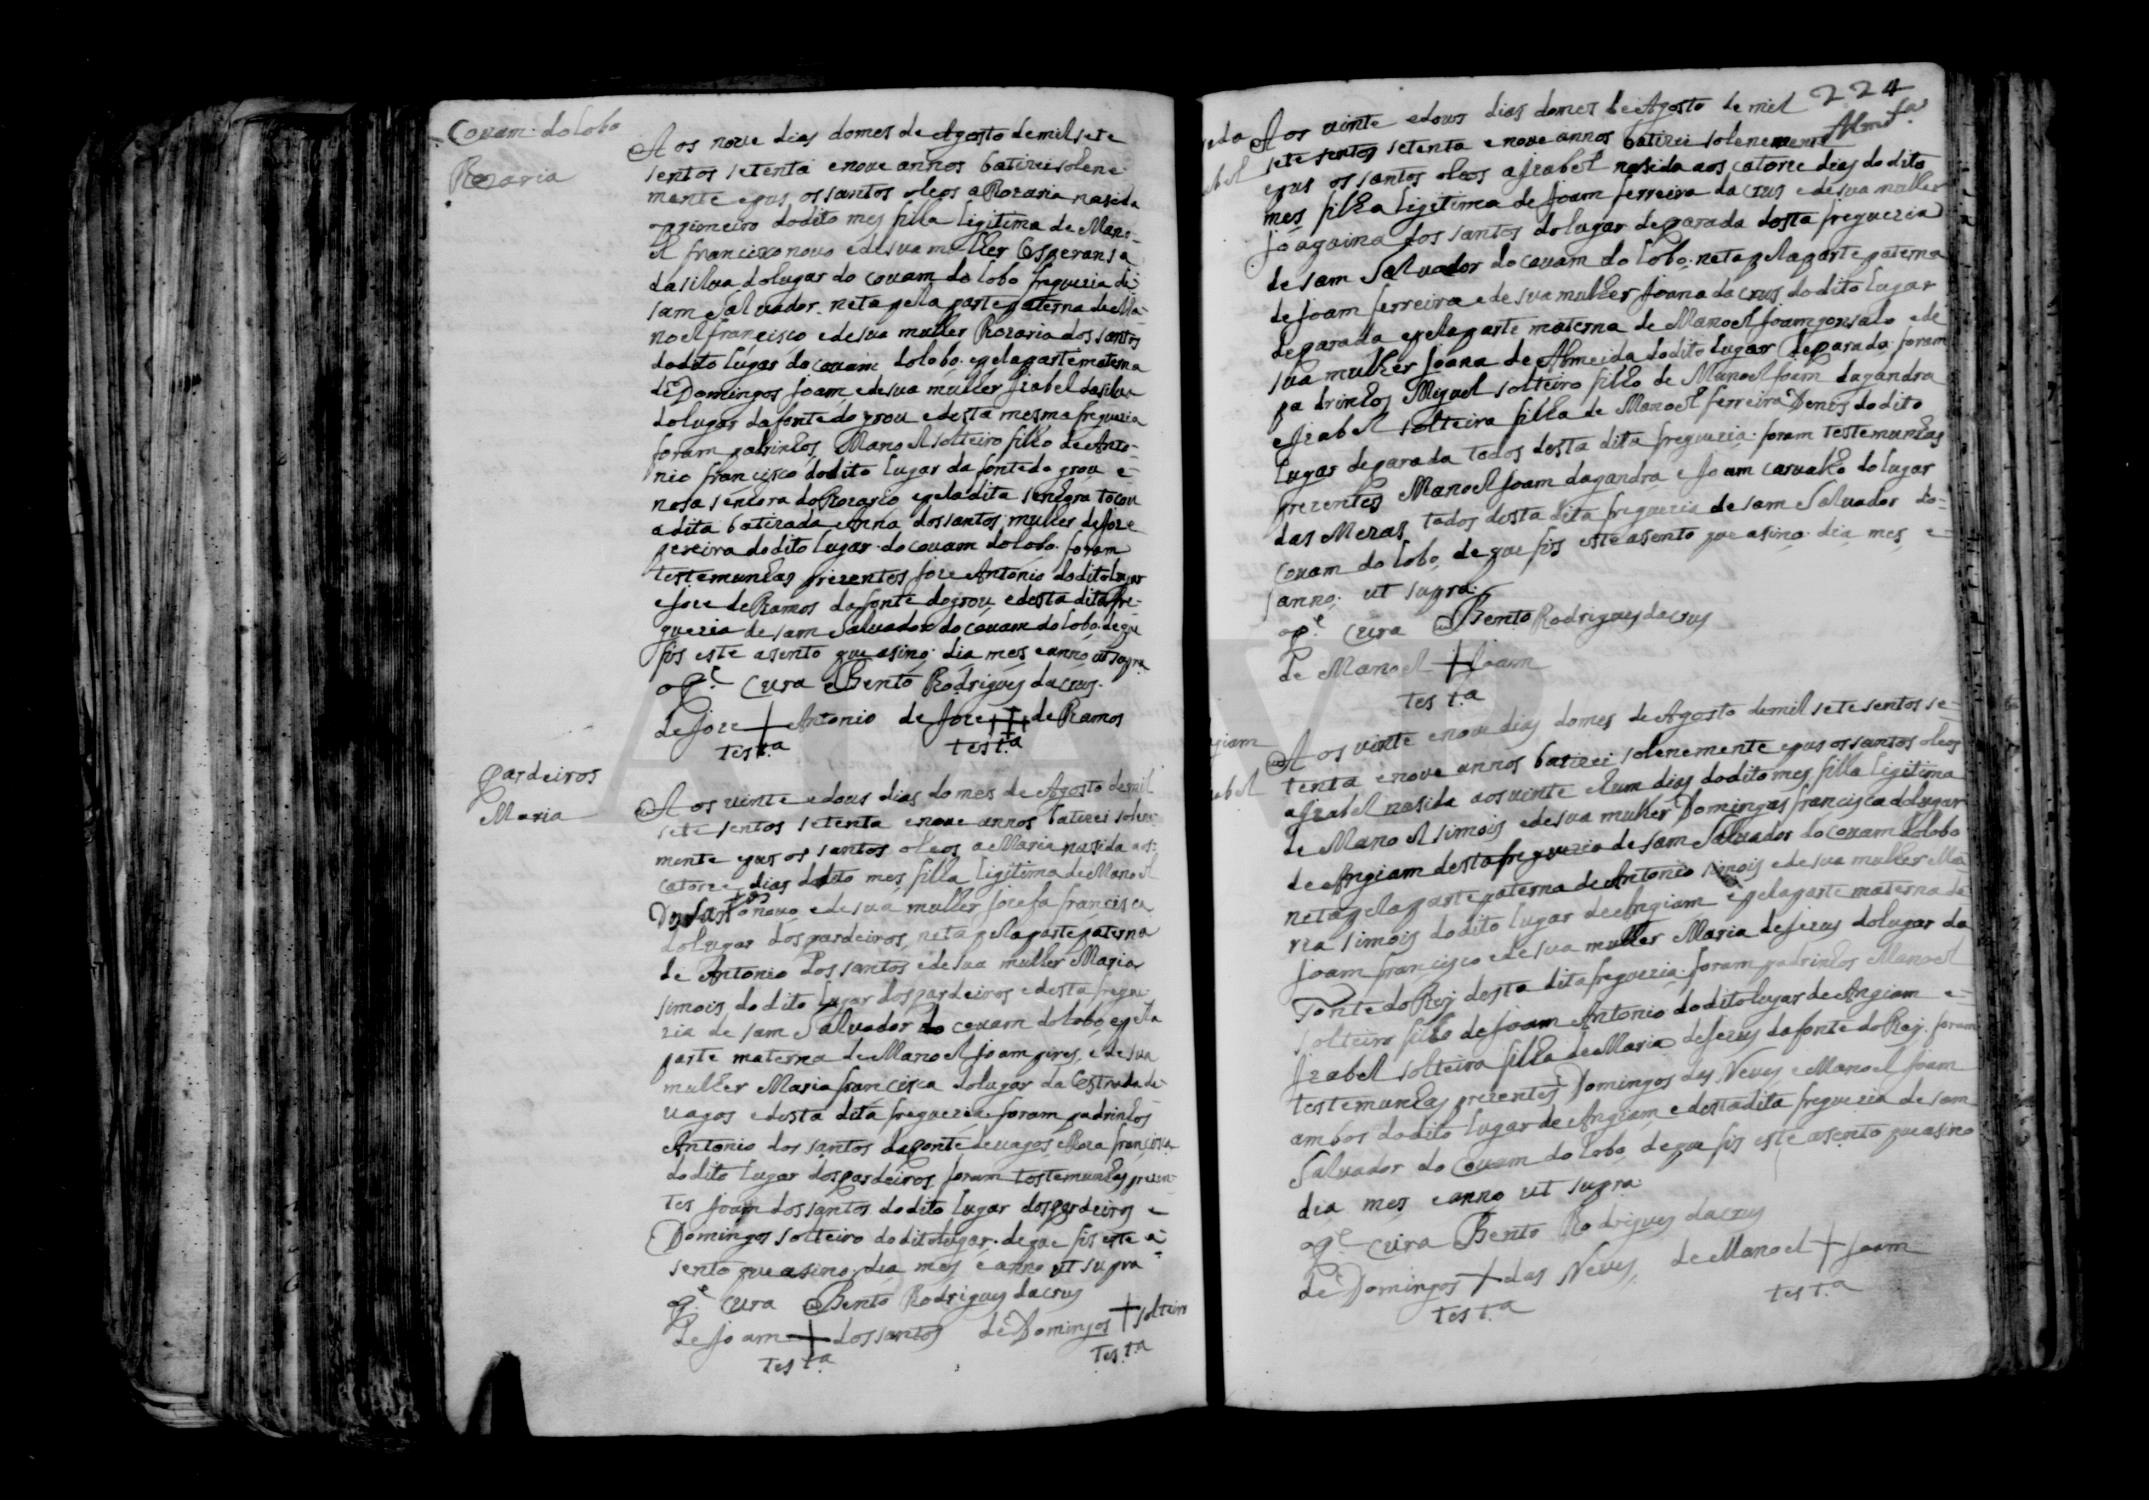 Covam do lobo
Rozaria
Aos nove dias domes de Agosto demil sete
sentos setenta enove annos batizei solene
mente epus ossantos oleos a Rozaria nasida
oprimeiro dodito mes filha ligitima de Mano-
el francisco novo edesua mulher Esperansa
dasilva dolugar do covam do lobo freguezia de
sam Salvador. neta pela parte paterna de Ma-
noel francisco edesua mulher Rozaria dos santos
dodito lugar do covam dolobo. epela parte materna
de Domingos Joam edesua mulher Izabel dasilva
dolugar dafonte do grou edesta mesma freguezia
foram padrinhos Manoel solteiro filho de Anto-
nio francisco dodito lugar da fonte do grou e
nosa senhora do Rozario epela dita senhora tocou
adita batizada Anna dossantos mulher de Joze
pereira dodito lugar do covam dolobo. foram
testemunhas prezentes Joze Antonio dodito lugar
e Joze de Ramos da fonte dogrou edesta dita fre-
guezia de sam Salvador do covam do lobo. deque
fis este asento que asino. dia mes eanno ut supra
op.e Cura Bento Rodrigues dacrus.
de Joze + Antonio de Joze + de Ramos
test.a test.a
Pardeiros
Maria
Aos vinte edous dias do mes de Agosto demil
sete sentos setenta enove annos batizei solene
mente epus os santos oleos a Maria nasida aos
catorze dias dodito mes filha ligitima de Manoel
Dos Santos novo edesua mulher Jozefa francisca
dolugar dos pardeiros neta pela parte paterna
de Antonio dos santos edesua mulher Maria
simois do dito lugar dos pardeiros edesta fregue
zia de sam Salvador do covam dolobo, epela
parte materna de Manoel Joam pires, edesua
mulher Maria francisca dolugar da Estrada de
vagos edesta dita freguezia. foram padrinhos
Antonio dos santos daponte devagos e Roza francisca
dodito lugar dos pardeiros foram testemunhas prezen-
tes Joam dos santos dodito lugar dos pardeiros e
Domingos solteiro do dito lugar. de que fis este a
sento que asino. dia mes e anno ut supra
op.e Cura Bento Rodrigues dacrus
de Joam + dos santos de Domingos + solteiro
test.a test.a
224
Aos vinte edous dias domes de Agosto de mil
Almd.a
sete sentos setenta enove annos batizei solenemente
epus os santos oleos a Izabel nasida aos catorze dias do dito
mes filha ligitima de Joam ferreira da crus edesua mulher
Joaquina dos santos dolugar de parada desta freguezia
de sam Salvador do covam do lobo. neta pela parte paterna
de Joam ferreira edesua mulher Joana da crus do dito lugar
de parada epela parte materna de Manoel Joam gonsalo ede
sua mulher Joana de Almeida dodito lugar de parada. foram
padrinhos Miguel solteiro filho de Manoel Joam dagandra
e Izabel solteira filha de Manoel ferreira Denis do dito
lugar deparada todos desta dita freguezia. foram testemunhas
prezentes Manoel Joam dagandra e Joam carvalho do lugar
das Mezas, todos desta dita freguezia de sam Salvador do-
covam do lobo, de que fis este asento que asino. dia mes e
anno. ut supra.
op.e Cura Bento Rodrigues dacrus
de Manoel + Joam
test.a
Aos vinte enove dias domes de Agosto demil setesentos se-
tenta enove annos batizei solenemente epus ossantos oleos
a Izabel nasida aos vinte ehum dias dodito mes, filha ligitima
de Manoel simois edesua mulher Domingas francisca dolugar
de Angiam desta freguezia de sam Salvador do covam dolobo
neta pela parte paterna de Antonio simois edesua mulher Ma-
ria simois do dito lugar de Angiam epela parte materna de
Joam francisco edesua mulher Maria de Jezus dolugar da
Fonte do Rej desta dita freguezia. foram padrinhos Manoel
solteiro filho de Joam Antonio do dito lugar de Angiam e
Izabel solteira filha de Maria de Jezus da fonte do Rej. foram
testemunhas prezentes Domingos das Neves e Manoel Joam
ambos dodito lugar de Angiam edesta dita freguezia de sam
Salvador do Covam do lobo, de que fis este asento que asino
dia mes eanno ut supra
op.e Cura Bento Rodrigues dacrus
de Domingos + das Neves, de Manoel + Joam
test.a test.a